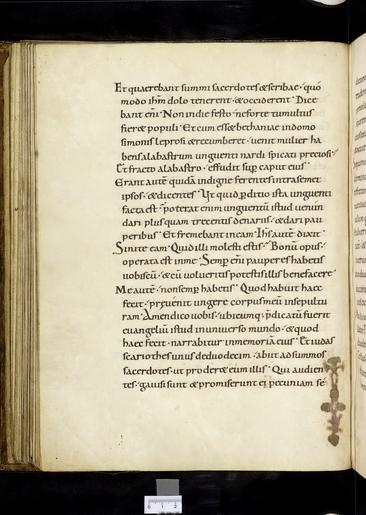 Et quaerebant summi sacerdotes & scribae · quo
modo ihm̄ dolo tenerent · & occiderent · Dice
bant eni̅ · Non in die festo · ne forte tumultus
fier& populi · Et cum ess& bethaniae in domo
simonis leprosi & recumberet · uenit mulier ha
bens alabastrum unguenti nardi spicati preciosi ·
Et fracto alabastro · effudit sup̅ caput eius ·
Erant aute̅ quida̅ indigne ferentes intra semet
ipsos · & dicentes · Ut quid p̅ditio ista unguenti
facta est · poterat enim unguentu̅ istud uenun
dari plus quam trecentis denariis · & dari pau
peribus · Et fremebant in eam · Ihs̅ aute̅ dixit ·
Sinite eam · Quid illi molesti estis · Bonu̅ opus
operata est in me · Semp̅ eni̅ pauperes habetis
uobiscu̅ · & cu̅ uolueritis potestis illis benefacere
Me aute̅ · non semp̅ habetis · Quod habuit haec
fecit · p̅uenit ungere corpus meu̅ in sepultu
ram · Amen dico uobis · ubicumq; p̅dicatu̅ fuerit
euangeliu̅ istud in uniuerso mundo · & quod
haec fecit · narrabitur in memoria̅ eius · Et iudas
scariothes unus de duodecim · abiit ad summos
sacerdotes · ut proder& eum illis · Qui audien
tes · gauisi sunt & promiserunt ei pecuniam se